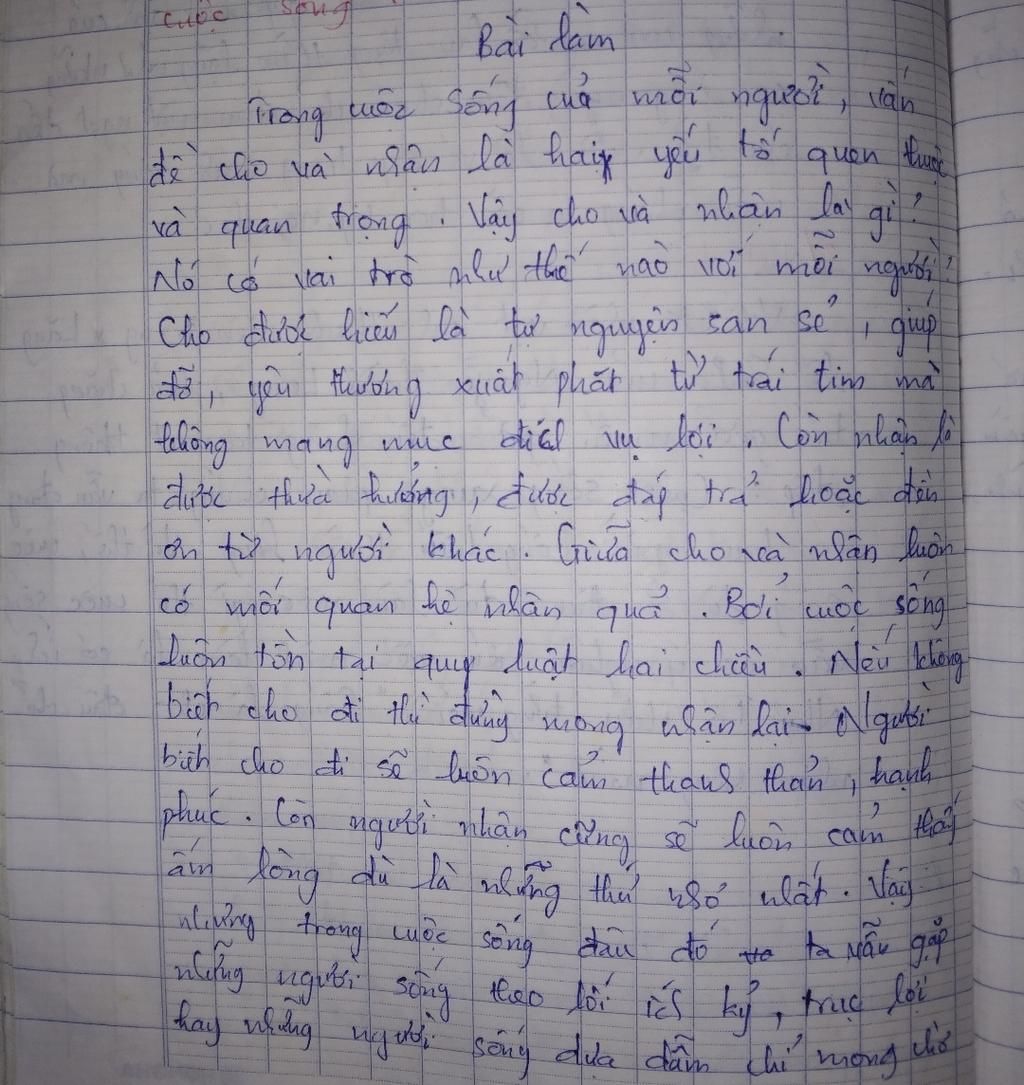 cuộc sống
Bài làm
Trong cuộc sống của mỗi người, vấn
đề cho và nhận là hai yếu tố quen thuộc
và quan trọng. Vậy cho và nhận là gì?
Nó có vai trò như thế nào với mỗi người?
Cho được hiểu là tự nguyện san sẻ, giúp
đỡ, yêu thương xuất phát từ trái tim mà
không mang mục đích vụ lợi. Còn nhận là
được thừa hưởng, được đáp trả hoặc đền
ơn từ người khác. Giữa cho và nhận luôn
có mối quan hệ nhân quả. Bởi cuộc sống
luôn tồn tại quy luật hai chiều. Nếu không
biết cho đi thì đừng mong nhận lại. Người
biết cho đi sẽ luôn cảm thanh thản, hạnh
phúc. Còn người nhận cũng sẽ luôn cảm thấy
ấm lòng dù là những thứ nhỏ nhất. Vậy
nhưng trong cuộc sống đâu đó ta vẫn gặp
những người sống theo lối ích kỷ, trục lợi
hay những người sống dựa dẫm chỉ mong chờ